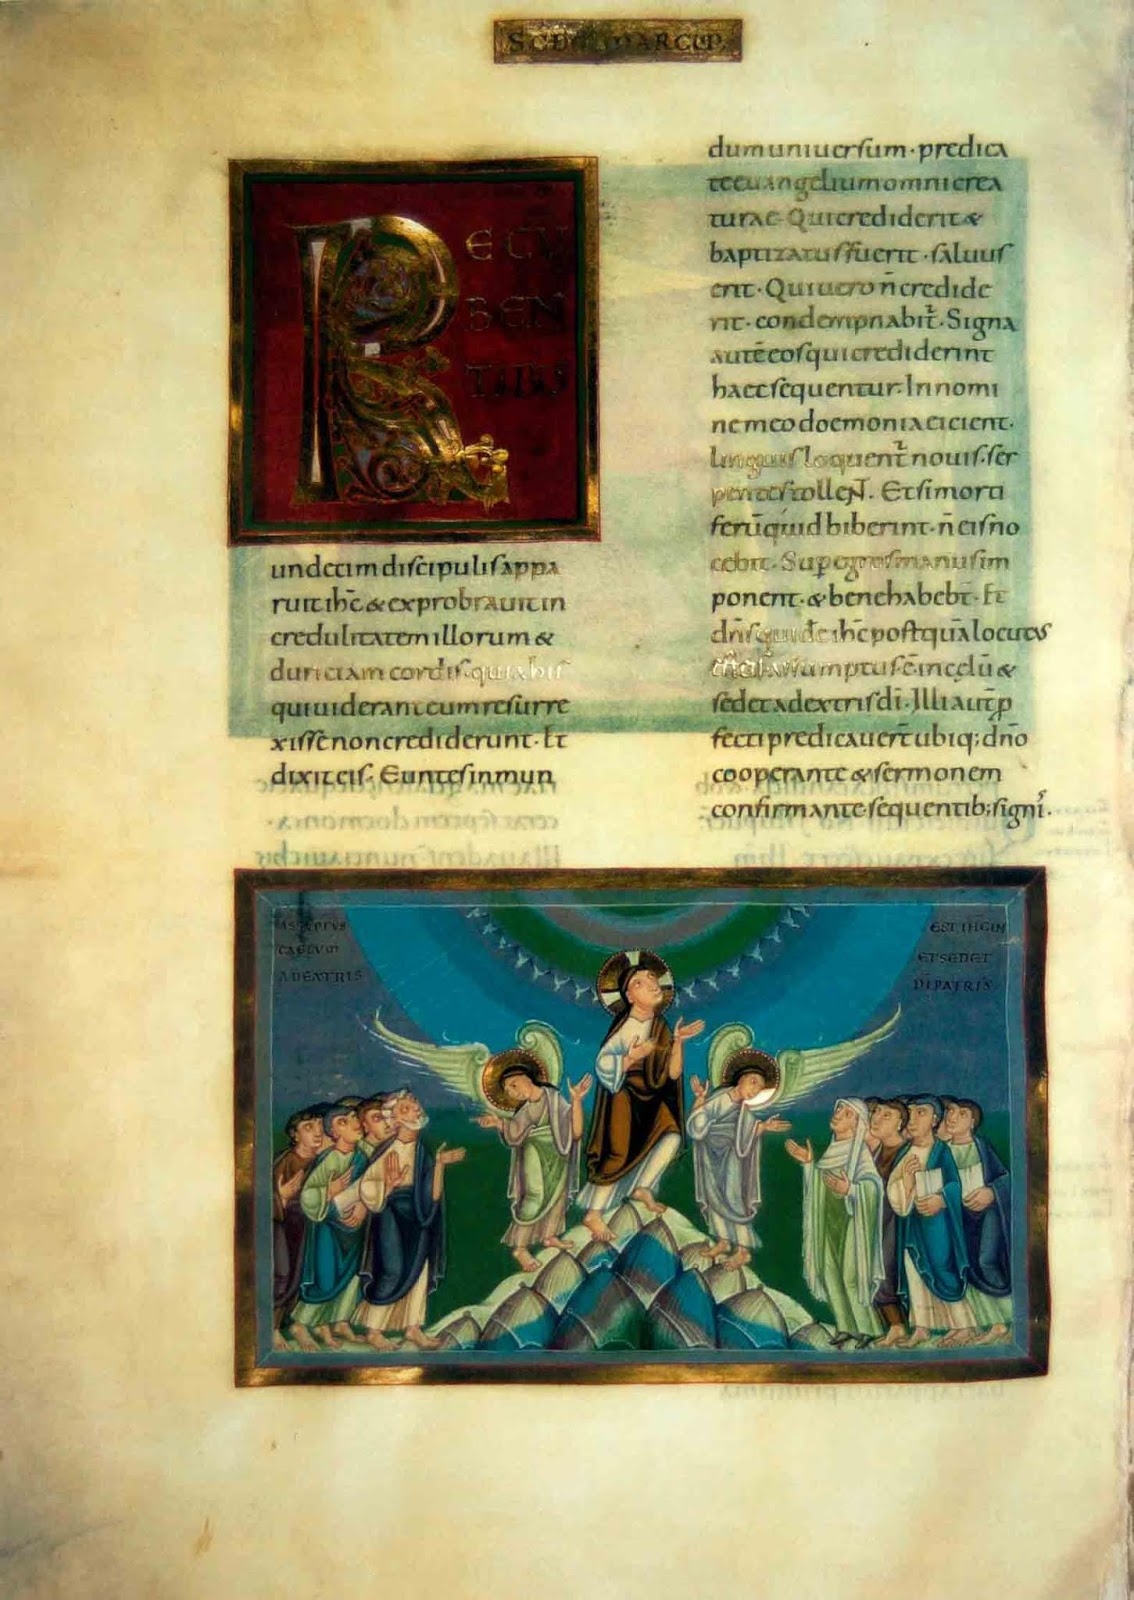 MARC
R
ECU
BEN
TIBUS
undecim discipulis appa
ruit ihc̄ & exprobrauit in
credulitatem illorum &
duriciam cordis· quia his
qui uiderant eum resurre
xisse non crediderunt· Et
dixit eis· Euntes in mun
dum uniuersum· predica
te euangelium omni crea
turae· Qui crediderit &
baptizatus fuerit· saluus
erit· Qui uero n̄ credide
rit· condempnabit̄· Signa
autē eos qui crediderint
haec sequentur· In nomi
ne meo doemonia eicient·
linguis loquent̄ nouis· ser
pentes tollent· Et si morti
ferū quid biberint· n̄ eis no
cebit· Sup̄ egros manus im
ponent· & bene habebt̄· Et
dn̄s quidē ihc̄ postquā locutus
assumptus ē in celū &
sedet a dextris dī· Illi autē p
fecti predicauert̄ ubiq; dn̄o
cooperante & sermonem
confirmante· sequentib; signis·
CAELUM
ADEXTRIS
EST IHC̄ IN
ET SEDET
DĪ PATRIS